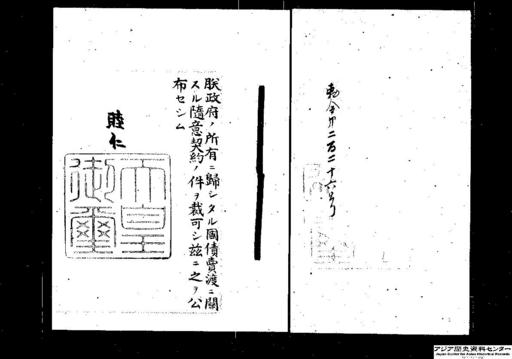 勅令第二百二十六号
朕政府ノ所有ニ歸シタル國債賣渡ニ關
スル隨意契約ノ件ヲ裁可シ茲ニ之ヲ公
布セシム
睦仁
天皇
御璽
アジア歴史資料センター
Japan Center for Asian Historical Records